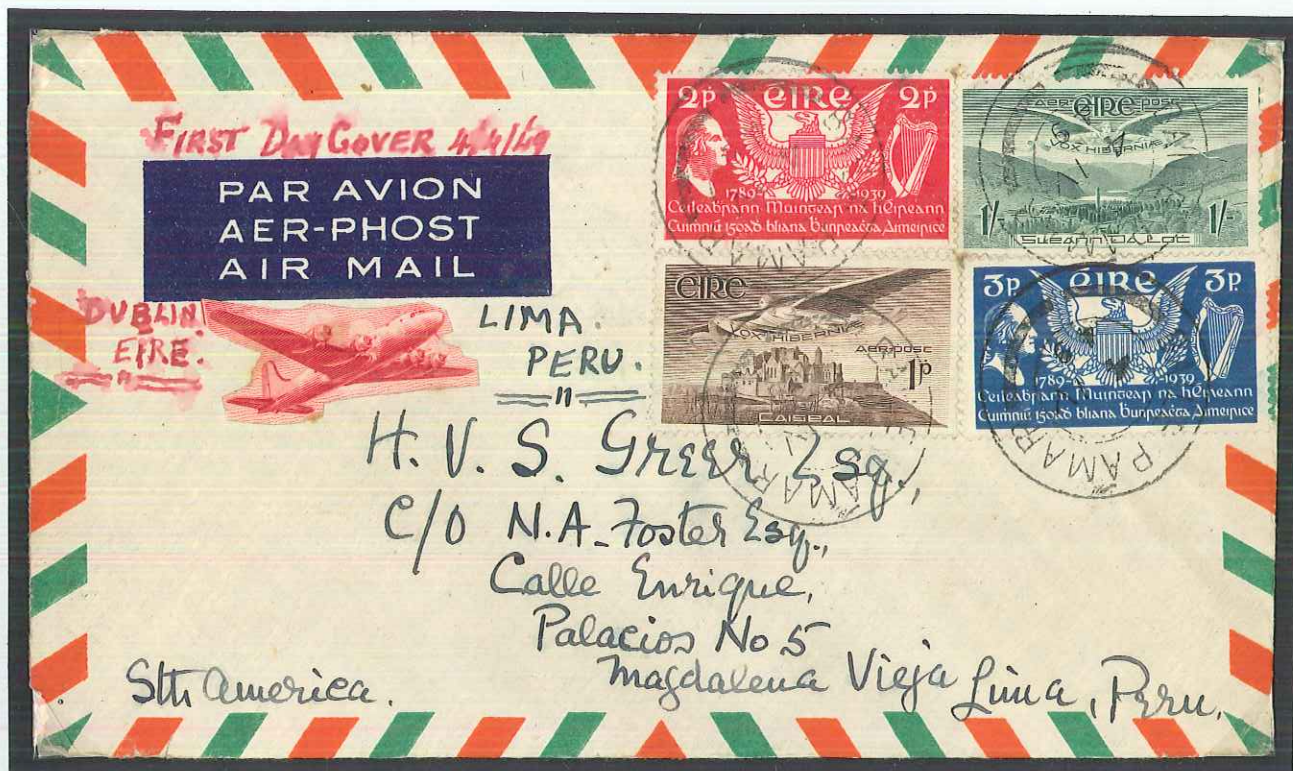 FIRST DAY COVER 4/4/49
PAR AVION
AER-PHOST
AIR MAIL
DUBLIN.
EIRE.
LIMA.
PERU.
2p éire 2p
1789- -1939
Ceileabrann Muintear na hÉireann
Cuimniú 150ad bliana Bunreacta Aimeirice
AER ÉIRE POST
VOX HIBERNIÆ
1/- 1/-
Gleann Dá Loc
ÉIRE
VOX HIBERNIÆ
AER POST
1p
CAISEAL
3p éire 3p
1789- -1939
Ceileabrann Muintear na hÉireann
Cuimniú 150ad bliana Bunreacta Aimeirice
H. V. S. Greer Esq.,
C/O N.A. Foster Esq.,
Calle Enrique,
Palacios No 5
Magdalena Vieja Lima, Peru.
Sth America.